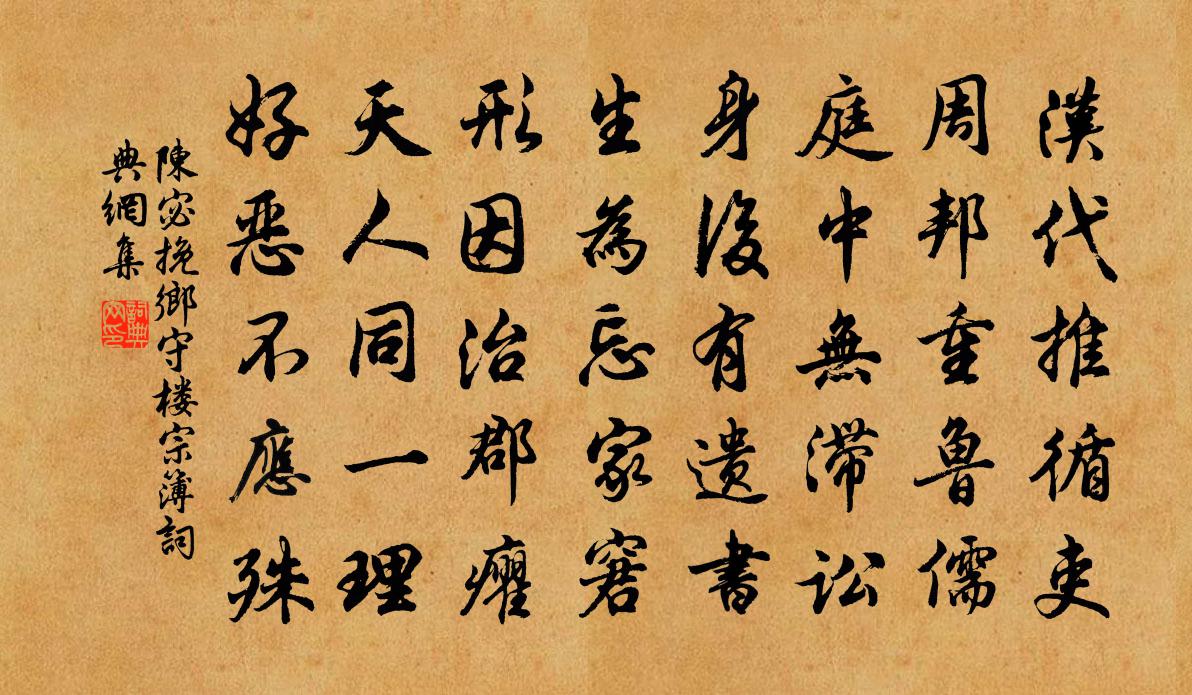 漢代推循吏
周邦重魯儒
庭中無滯訟
身後有遺書
生為忘家窘
形因治郡癯
天人同一理
好惡不應殊
陳宓挽鄉守楼宗簿詞
典網集
詞典
网印